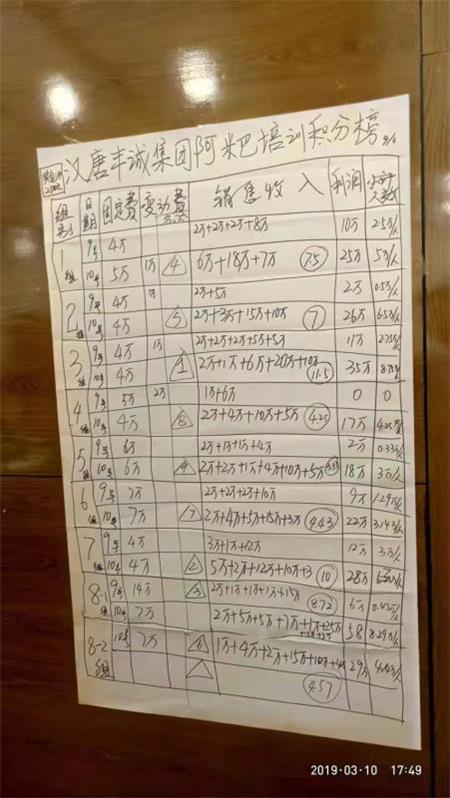 汉唐丰诚集团阿米巴培训积分榜
组别 日期 固定费 变动费 销售收入 利润 小时/人数
1组 9号 4万 2万+2万+2万+8万 10万 2.5万/人
10号 5万 1万 4 6万+18万+7万 7.5 25万 5万/人
2组 9号 4万 1万 2万+5万 2万 0.5万/人
10号 4万 5 2万+3万+15万+10万 7 26万 6.5万/人
3组 9号 4万 1万 2万+2万+2万+5万+5万 11万 2.75万/人
10号 4万 1 2万+1万+6万+20万+10万 11.5 35万 8.75万/人
4组 9号 5万 2万 1万+6万 0 0
10号 4万 8 2万+4万+10万+5万 4.25 17万
5组 9号 6万 2万+1万+1万+4万 2万 0.33万/人
10号 6万 9 2万+2万+1万+4万+10万+5万 18万 3万/人
6组 9号 7万 2万+2万+2万+10万 9万 1.29万/人
10号 7万 7 2万+4万+5万+15万+3万 4.43 22万 3.14万/人
7组 9号 4万 3万+1万+12万 12万 3万/人
10号 4万 2 5万+2万+12万+10万+3 10 28万
8-1 9号 14万 3 2万+1万+1万+1万+15万 8.72 6万
10号 7万 2万+5万+5万+7万+1万+25万 58 8.29万/人
8-2组 10号 7万 6 1万+4万+2万+15万+10万+4万 29万
4.57
2019·03·10 17:49